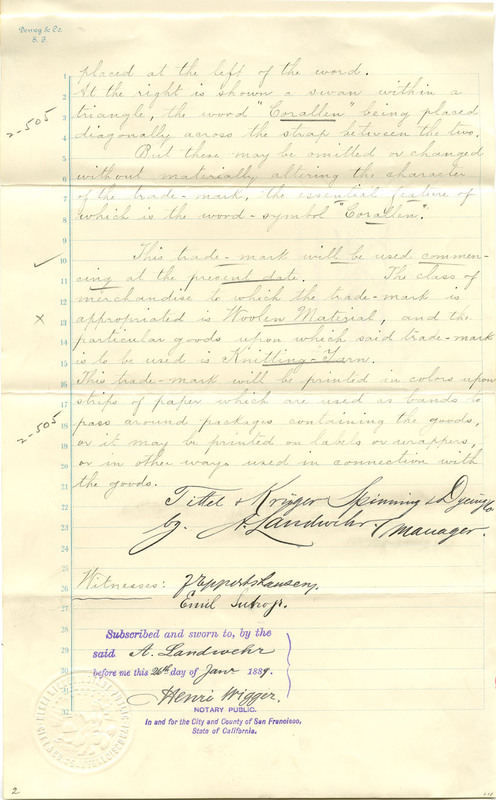 Dewey & Co.
S. F.
placed at the left of the word.
At the right is shown a swan within a
triangle, the word "Corallen" being placed
diagonally across the strap between the two.
But these may be omitted or changed
without materially altering the character
of the trade-mark, the essential feature of
which is the word-symbol "Corallen".
This trade-mark will be used commen-
cing at the present date. The class of
merchandise to which the trade-mark is
appropriated is Woolen Material, and the
particular goods upon which said trade-mark
is to be used is Knitting-Yarn.
This trade-mark will be printed in colors upon
strips of paper which are used as bands to
pass around packages containing the goods,
or it may be printed on labels or wrappers,
or in other ways used in connection with
the goods.
Tittel & Krüger Spinning & Dyeing Co
by. A. Landwehr / Manager.
Witnesses:
Emil Sutro jr.
Subscribed and sworn to, by the
said A. Landwehr
before me this 26th day of Janr 1889.
Henri Wigger.
NOTARY PUBLIC.
In and for the City and County of San Francisco,
State of California.
2-505
x
2-505
1
2
3
4
5
6
7
8
9
10
11
12
13
14
15
16
17
18
19
20
21
22
23
24
25
26
27
28
29
30
31
32
2